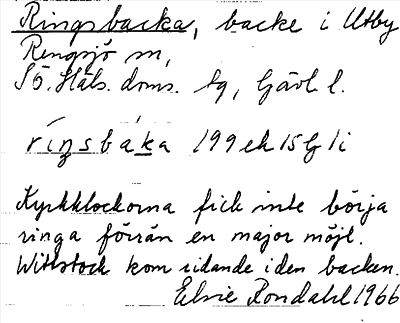 Ringsbacka, backe i Utby
Rengsjö sn,
Sö. Häls. doms. tg, Gävl. l.
ríŋsbàka 199 ek 15G 1i
Kyrkklockorna fick inte börja
ringa förrän en major möjl.
Wittstock kom ridande i den backen.
Elsie Rondahl 1966